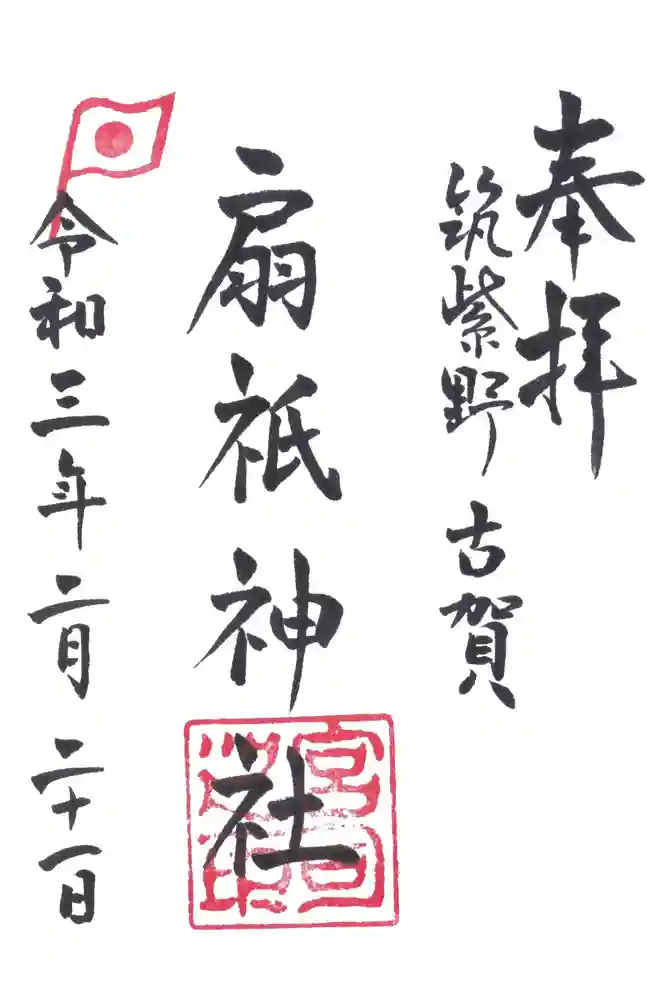 奉拝
筑紫野 古賀
扇祇神社
宮司之印
令和三年二月二十一日